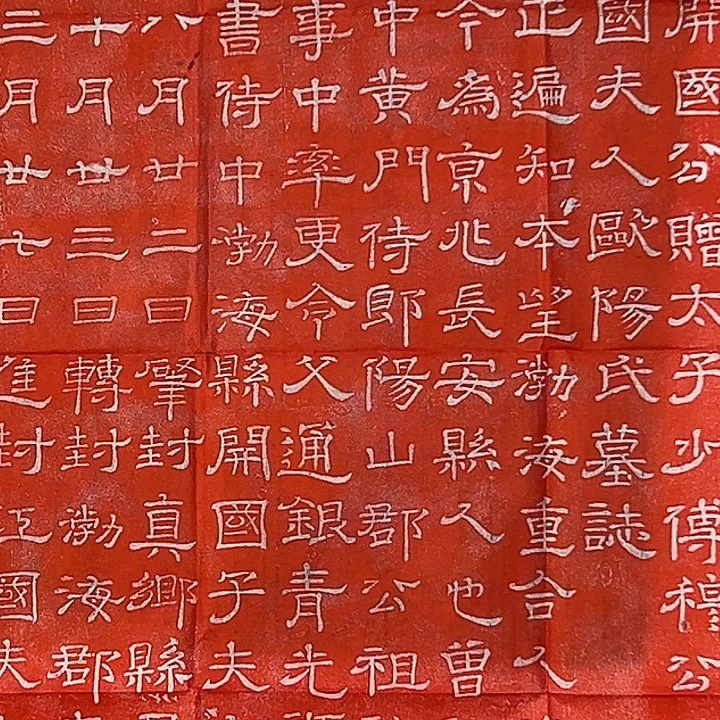 開國公贈太子少傅穆公
國夫人歐陽氏墓誌
正遍知本望渤海重合人
今為亰兆長安縣人也曾
中黃門待郎陽山郡公祖
事中率更令父通銀青光
書待中渤海縣開國子夫
八月廿二日肇封真鄉縣
十月廿三日轉封渤海郡
三月廿七日進封江國夫